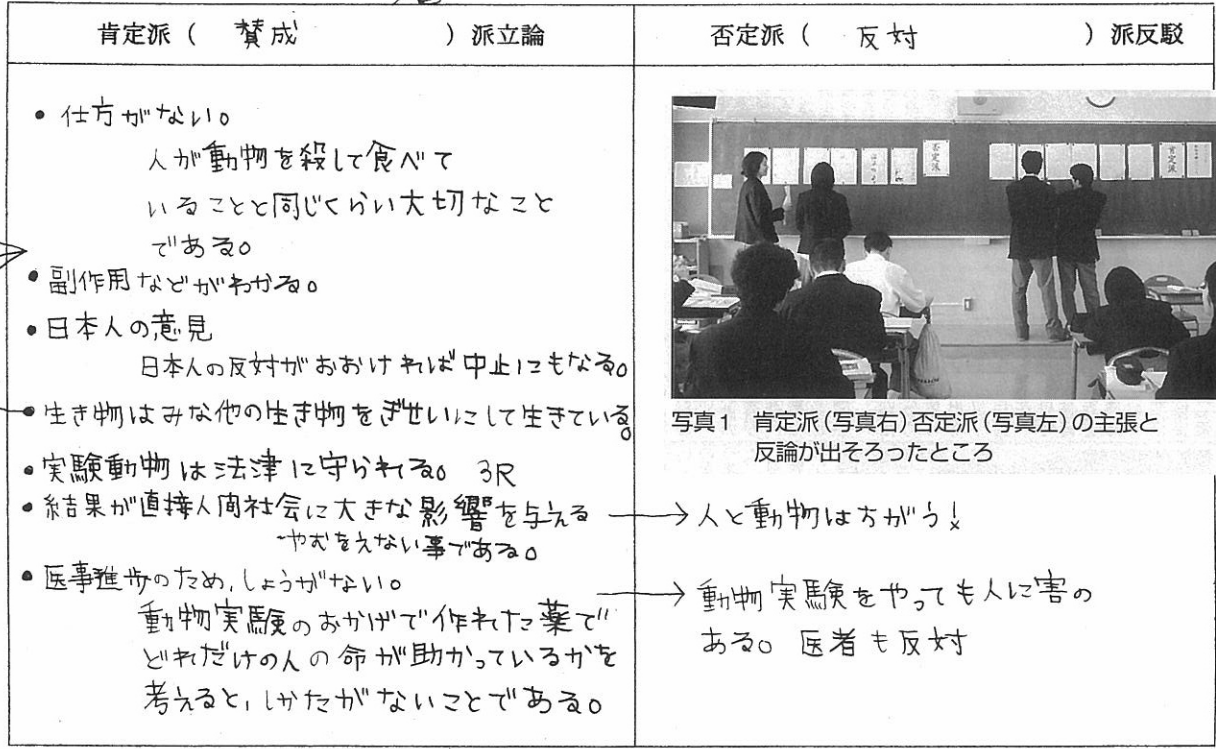 肯定派（ 賛成 ）派立論
否定派（ 反対 ）派反駁
• 仕方がない。
人が動物を殺して食べて
いることと同じくらい大切なこと
である。
• 副作用などがわかる。
• 日本人の意見
日本人の反対がおおければ中止にもなる。
• 生き物はみな他の生き物をぎせいにして生きている。
• 実験動物は法津に守られてる。 3R
• 結果が直接人間社会に大きな影響を与える
やむをえない事である。
• 医事進歩のため、しょうがない。
動物実験のおかげで作れた薬で
どれだけの人の命が助かっているかを
考えると、しかたがないことである。
否定派
肯定派
写真1 肯定派（写真右）否定派（写真左）の主張と
反論が出そろったところ
→ 人と動物はちがう！
→ 動物実験をやっても人に害の
ある。 医者も反対